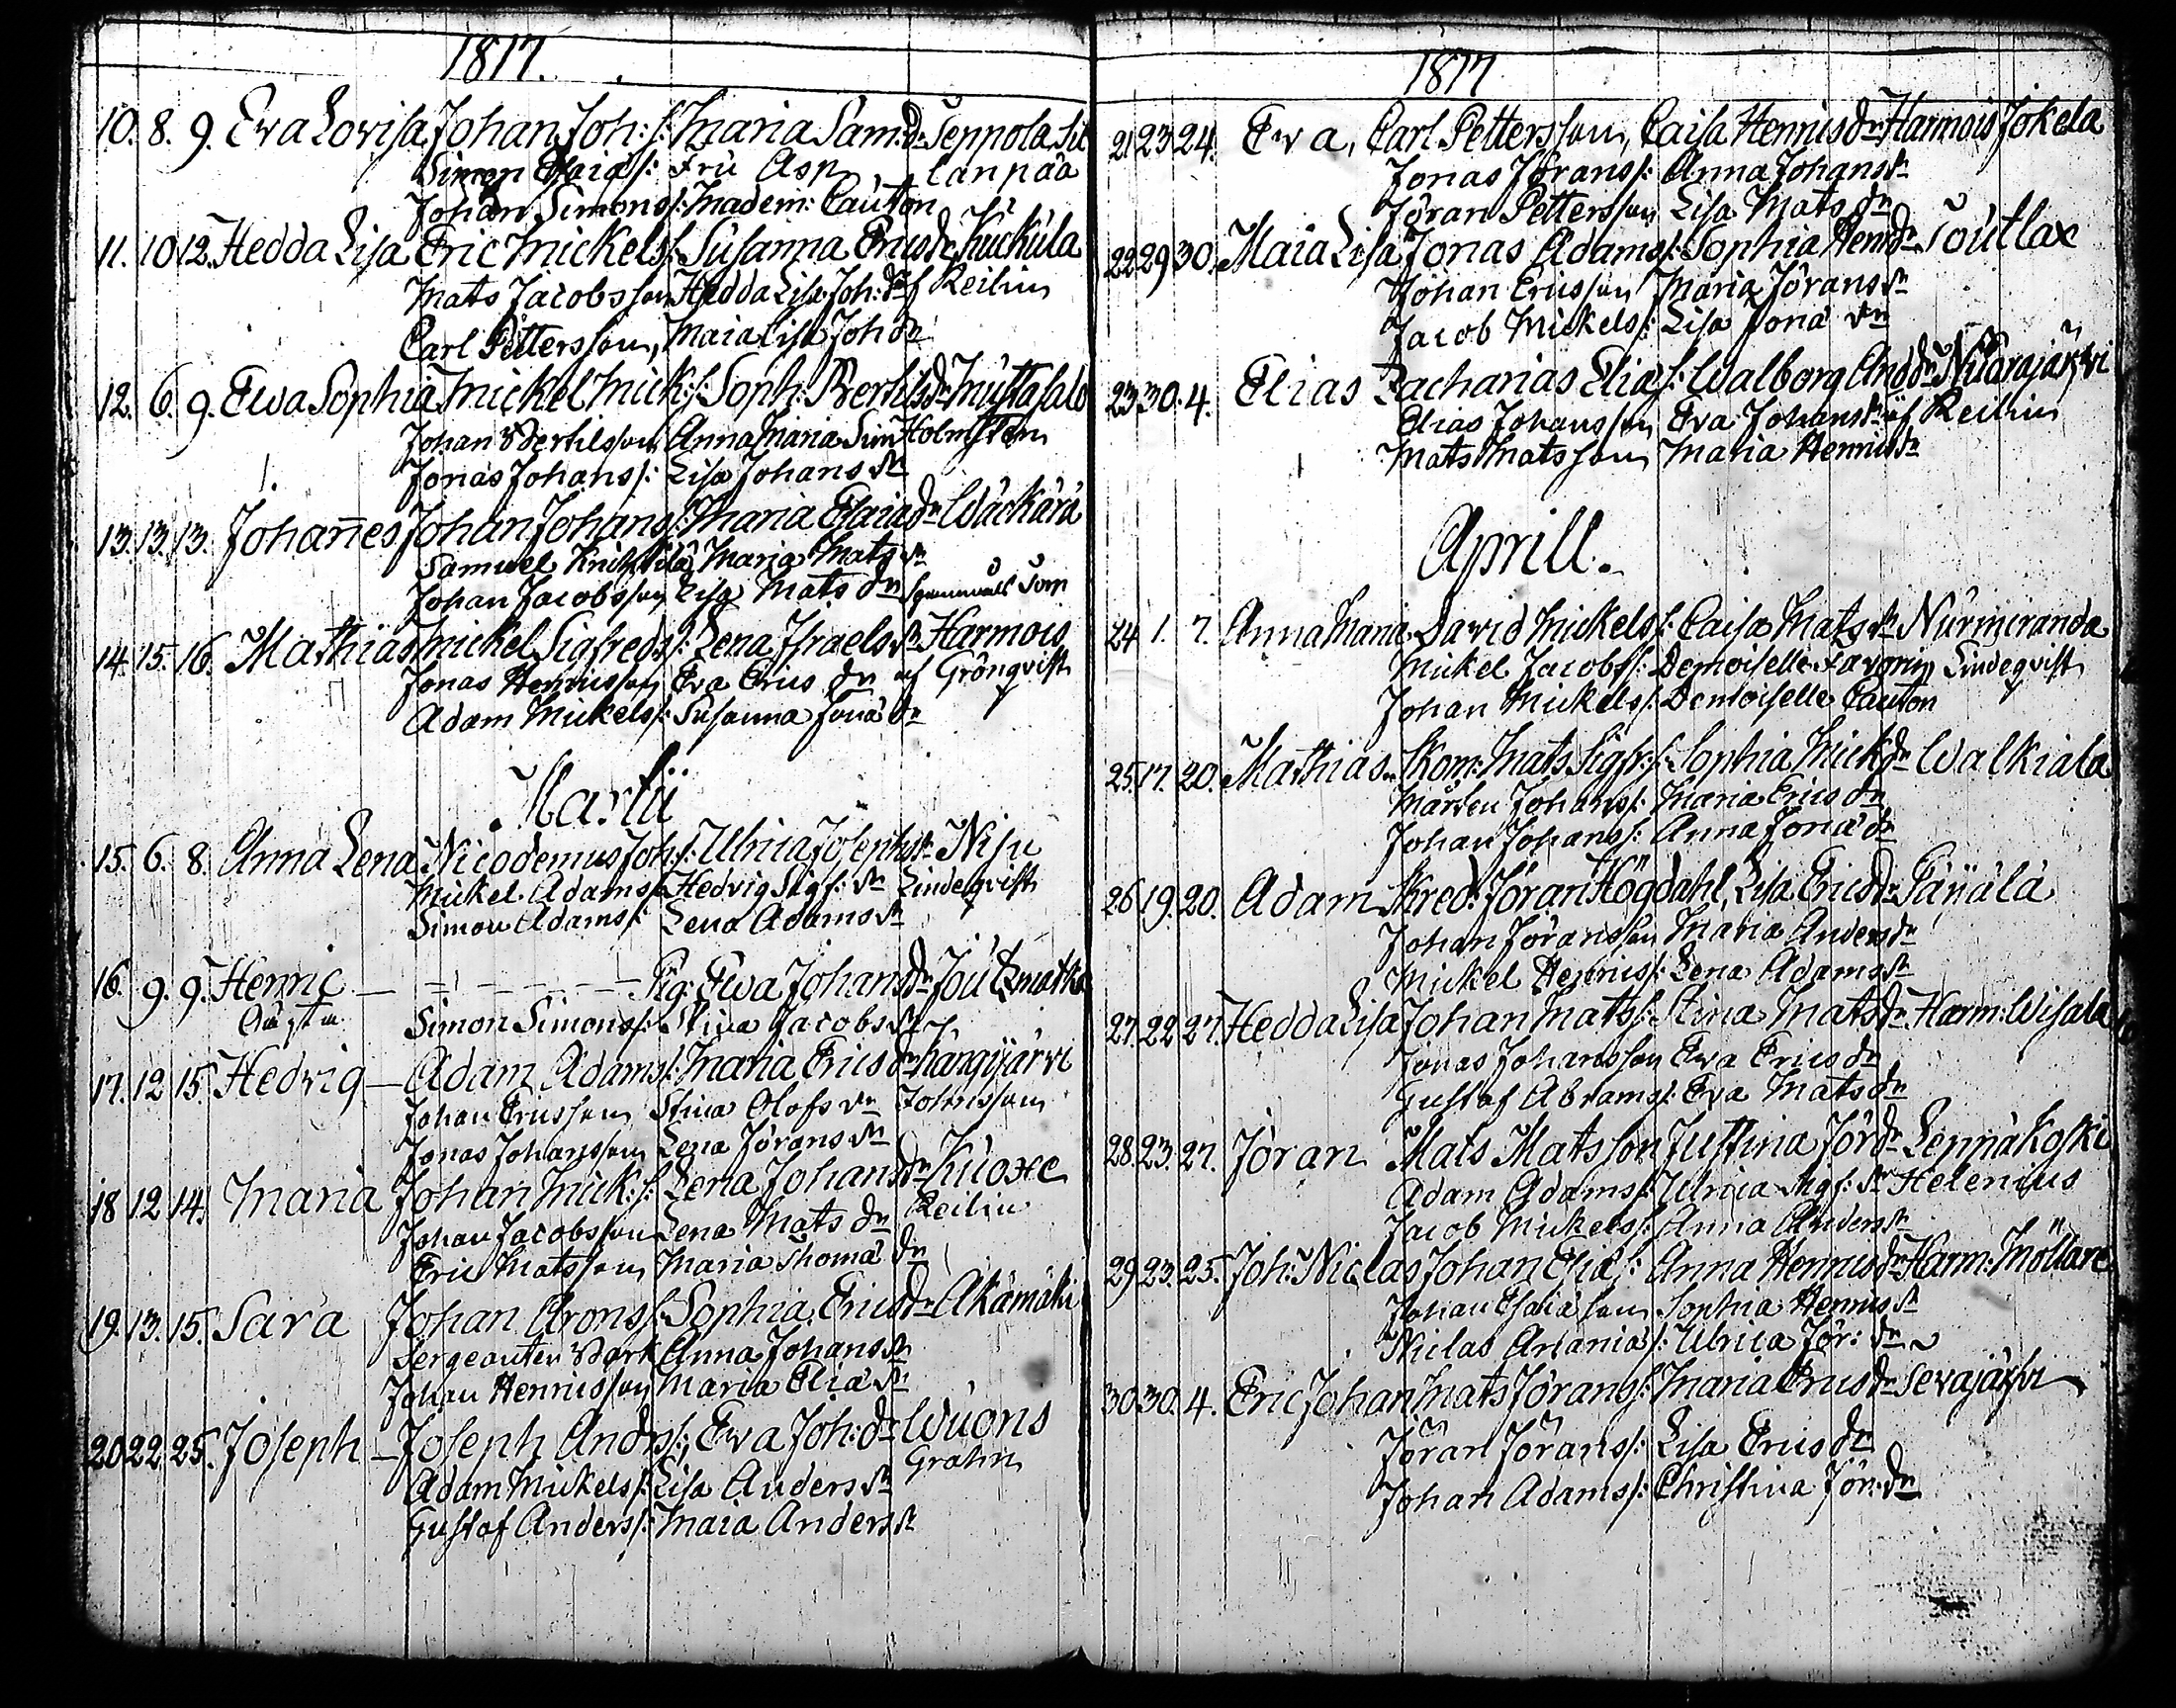 1817.
10. 8. 9. Eva Lovisa Johan Joh: s: Maria Sam: dr Seppola Sil
Simon Esaia s: Fru Asp lanpää
Johan Simons s: Madem: Cauton
11. 10 12. Hedda Lisa Eric Mickels s: Susanna Erics dr Kuckula
Mats Jacobsson Hedda Lisa Joh: dr af Reilin
Carl Pettersson, Maia Lisa Joh dr
12. 6. 9. Ewa Sophia Mickel Mick: s: Soph: Bertils dr Mustasalo
Johan Bertilsson Anna Maria Sim Holmsten
Jonas Johans s: Lisa Johans dr
13. 13. 13. Johannes Johan Johans s: Maria Esaia dr Wäckärä
Samuel Knichtilä Maria Mats dr
Johan Jacobsson Lisa Mats dr
14. 15. 16. Mathias Mickel Sigfreds s: Lena Israels dr Harmois
Jonas Henricsson Eva Erics dr af Grönqvist
Adam Mickels s: Susanna Jona dr
Martii
15. 6. 8. Anna Lena Nicodemus Joh: s: Ulrica Josephs dr Nisu
Mickel Adams s: Hedvig Sigf: dr Lindeqvist
Simon Adams s: Lena Adams dr
16. 9. 9. Henric — Pig: Ewa Johans dr Joutzmatka
Simon Simons s: Stina Jacobs dr
17. 12 15. Hedvig — Adam Adams s: Maria Erics dr Kangijärvi
Johan Ericsson Stina Olofs dr Johnsson
Jonas Johansson Lena Jörans dr
18 12 14. Maria Johan Mick: s: Lena Johans dr Kuoxe
Johan Jacobsson Lena Mats dr Reilin
Eric Matsson Maria Thoma dr
19. 13. 15. Sara Johan Arons s: Sophia Erics dr Akämäki
Sergeanten Bark Anna Johans dr
Johan Henricsson Maria Elia dr
20 22 25. Joseph — Joseph Anders s:, Ewa Joh: dr Wuons
Adam Mickels s: Lisa Anders dr Grahn
Gustaf Anders s: Maia Anders dr
1817
21 23 24. Eva, Carl Pettersson, Caisa Henrics dr Harmois Jokela
Jonas Jörans s: Anna Johans dr
Jöran Pettersson Lisa Mats dr
22 29 30. Maia Lisa Jonas Adams s: Sophia Henr dr Toutlax
Johan Ericsson Maria Jörans dr
Jacob Mickels s: Lisa Jona dr
23 30. 4. Elias Zacharias Elia s: Walborg And dr
Elias Johansson Eva Johans dr af Reilin
Mats Matsson Maria Henrics dr
Aprill.
24 1. 7. Anna Maria David Mickels s: Caisa Mats dr Nurmiranda
Mickel Jacobs s: Demoiselle Favorin Lindeqvist
Johan Mickels s: Demoiselle Cauton
25. 17. 20. Mathias Skom: Mats Sigfr: s: Sophia Mick dr Walkiala
Mårten Johans s: Maria Erics dr
Johan Johans s: Anna Jona dr
26 19. 20. Adam Skred: Jöran Högdahl, Lisa Erics dr Päijälä
Johan Jöransson Maria Anders dr
Mickel Henrics s: Lena Adams dr
27. 22 27. Hedda Lisa Johan Mats s: Stina Mats dr Harm: Wisala
Jonas Johansson Eva Erics dr
Gustaf Abrams s: Eva Mats dr
28. 23. 27. Jöran Mats Matsson Justina Jör dr Leppäkoski
Adam Adams s: Ulrica Sigf: dr Helenius
Jacob Mickels s: Anna Anders dr
29 23. 25. Joh: Niclas Johan Elia s: Anna Henrics dr Harm: Möllare
Johan Esaiason Sophia Henrics dr
Niclas Anania s: Ulrica Jör: dr
30 30. 4. Eric Johan Mats Jörans s: Maria Erics dr Serajärfvi
Jöran Jörans s: Lisa Erics dr
Johan Adams s: Christina Jör: dr